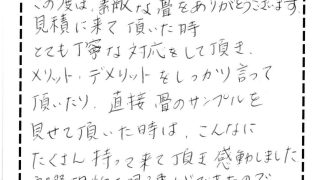 この度は、素敵な畳をありがとうございます
見積に来て頂いた時
とても丁寧な対応をして頂き、
メリット・デメリットをしっかり言って
頂いたり、直接畳のサンプルを
見せて頂いた時は、こんなに
たくさん持って来て頂き感動しました